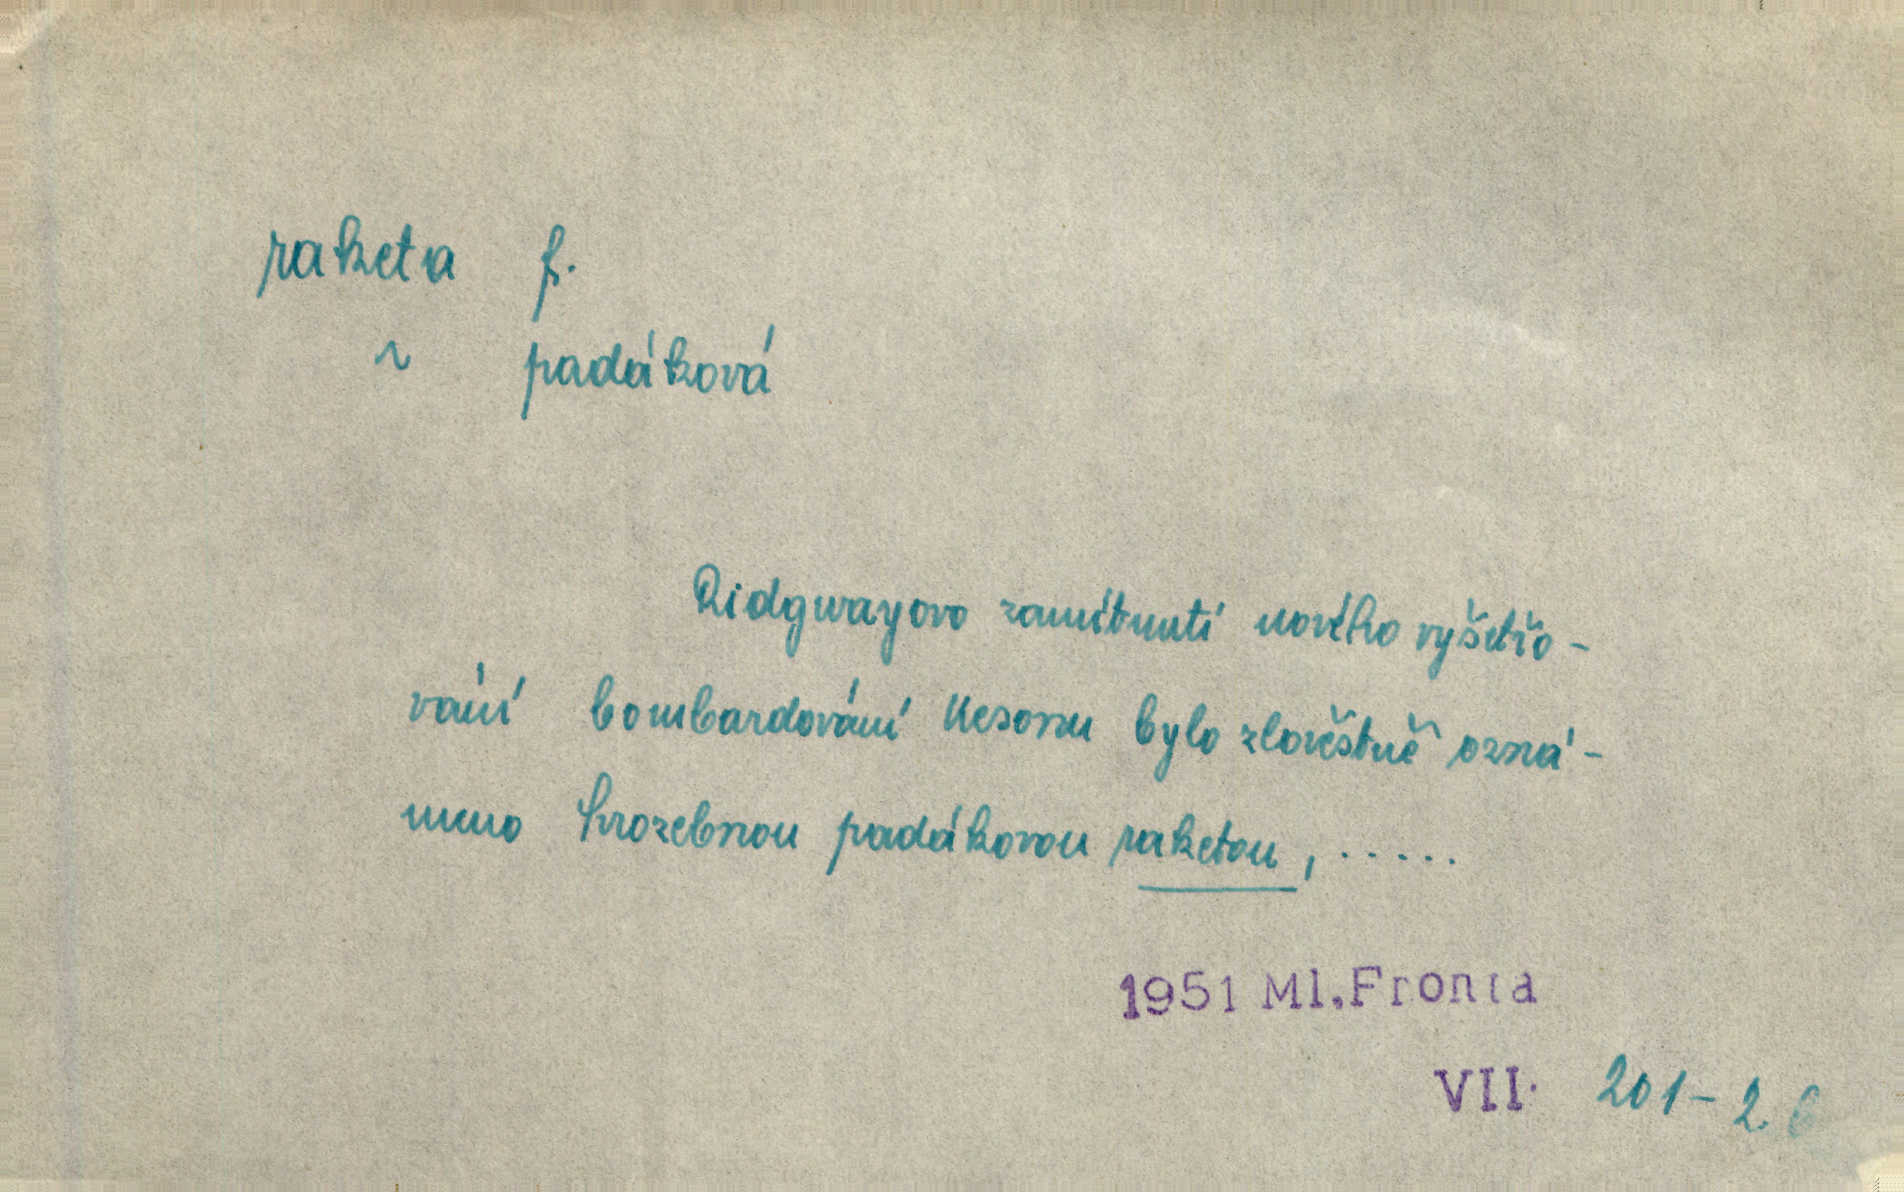 raketa f.
~ padáková
Ridgwayovo zamítnutí nového vyšetřo-
vání bombardování Kesonu bylo zlověstně ozná-
meno hrozebnou padákovou raketou, .....
1951 Ml. Fronta
VII. 201-2.